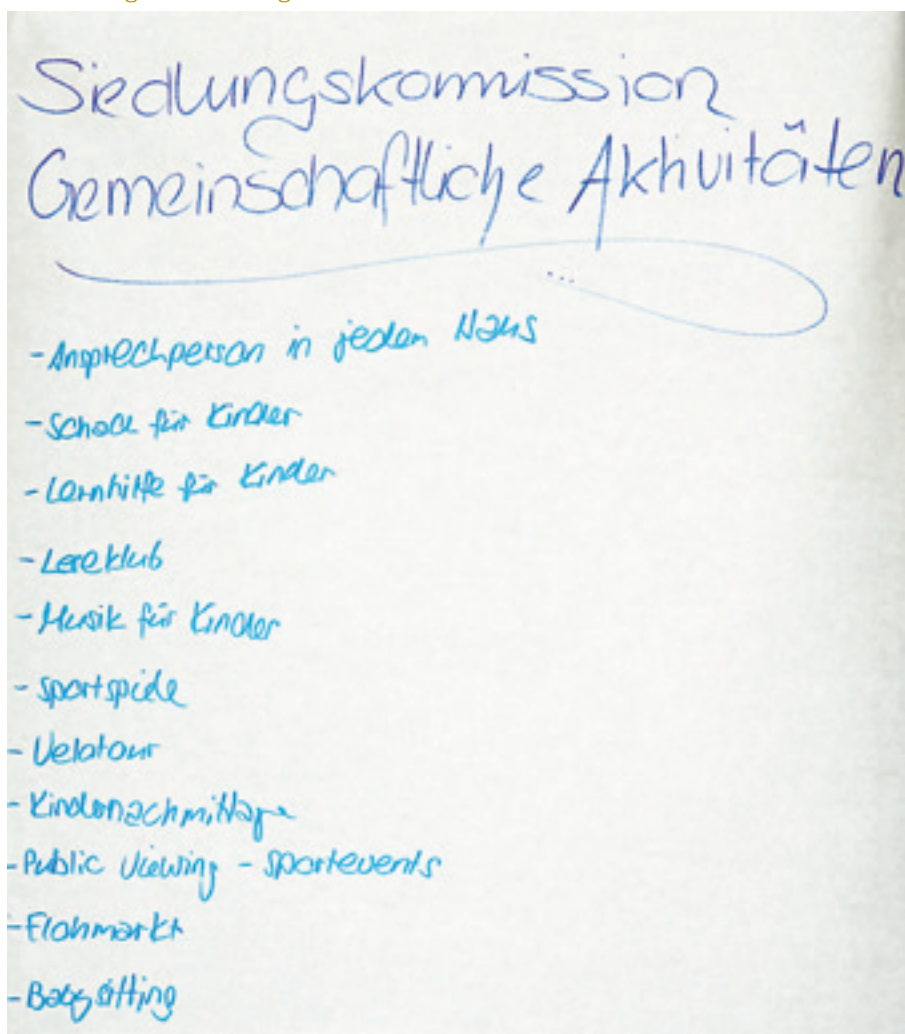 Siedlungskommission
Gemeinschaftliche Aktivitäten
...
- Ansprechperson in jedem Haus
- Schach für Kinder
- Lernhilfe für Kinder
- Leseklub
- Musik für Kinder
- Sportspiele
- Velotour
- Kindernachmittage
- Public Viewing - Sportevents
- Flohmarkt
- Babysitting